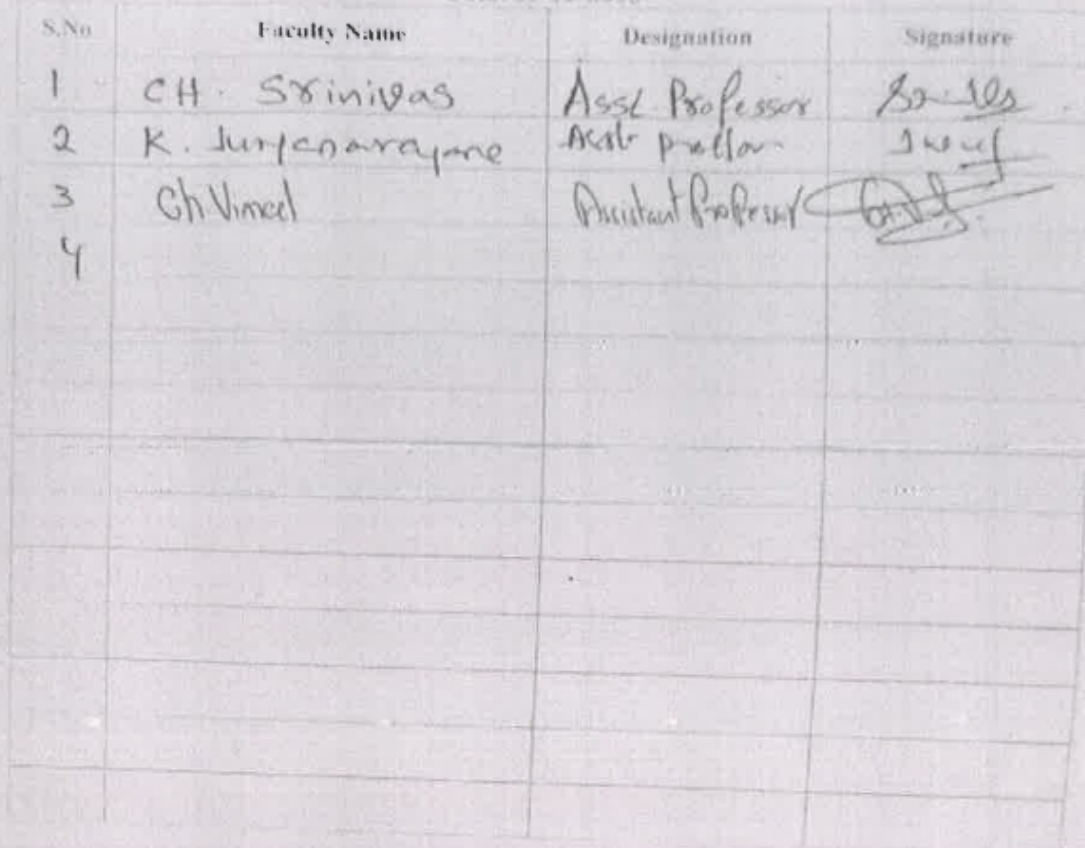 S.No Faculty Name Designation Signature
1 CH. Srinivas Asst. Professor
2 K. Suryanarayana Asst. Professor
3 Ch Vimal Assistant Professor
4